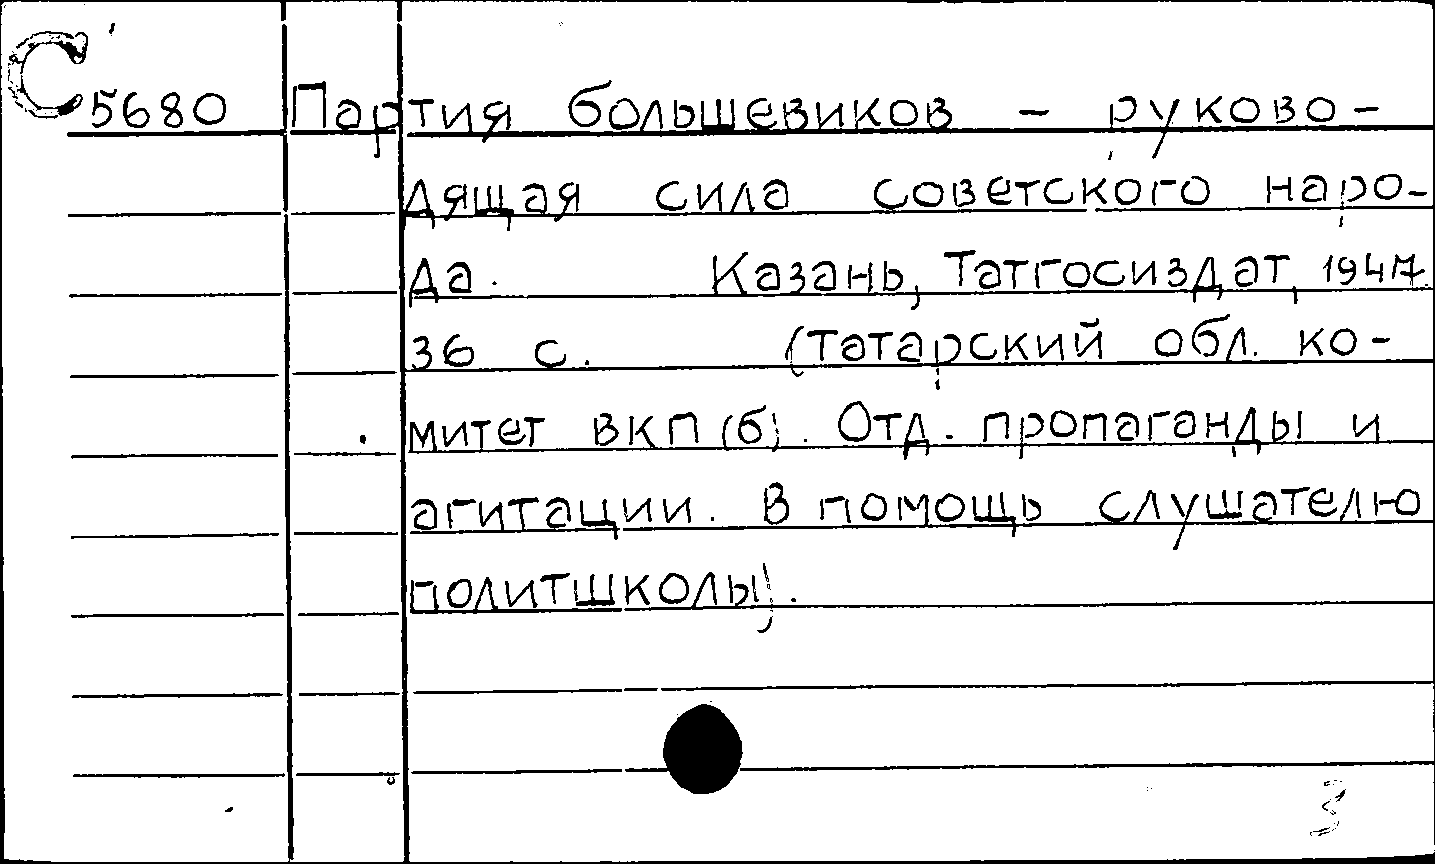 С 5680 Партия большевиков - руково-
дящая сила советского наро-
да. Казань, Татгосиздат, 1947.
36 с. (Татарский обл. ко-
митет ВКП(б). Отд. пропаганды и
агитации. В помощь слушателю
политшколы).
3